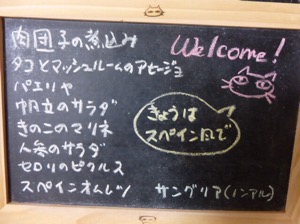 肉団子の煮込み
Welcome!
タコとマッシュルームのアヒージョ
パエリヤ
帆立のサラダ
きのこのマリネ
人参のサラダ
セロリのピクルス
スペインオムレツ
きょうは
スペイン風で
サングリア(ノンアル)